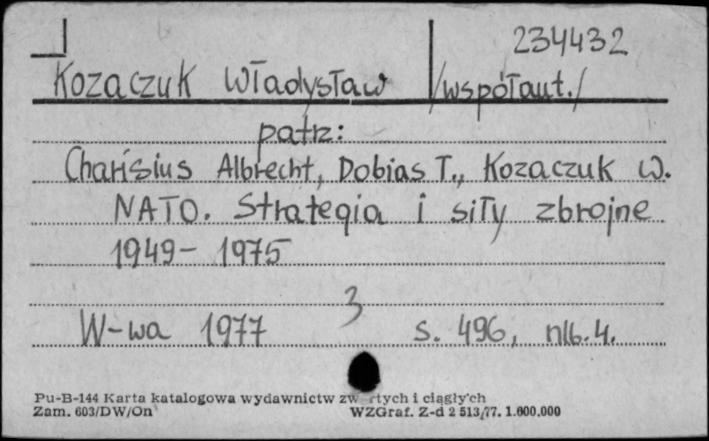 234432
Kozaczuk Władysław /współaut./
patrz:
Charisius Albrecht, Dobias T., Kozaczuk W.
NATO. Strategia i siły zbrojne
1949- 1975
3
W-wa 1977 s. 496, nlb. 4.
Pu-B-144 Karta katalogowa wydawnictw zw rtych i ciągłych
Zam. 603/DW/On WZGraf. Z-d 2 513/77. 1.600.000